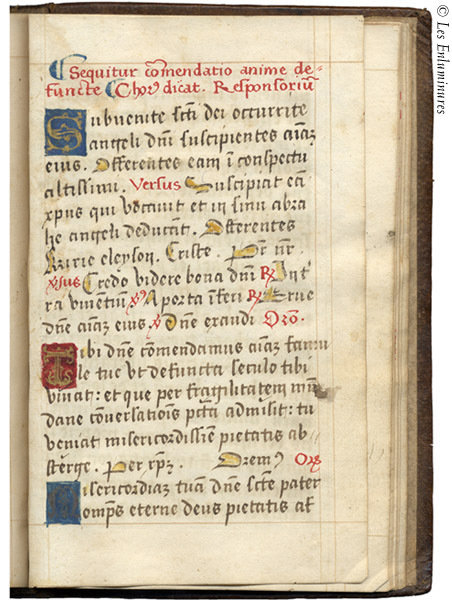 Sequitur cōmendatio anime de-
functe Chorꝰ dicat. Responsoriū
Subuenite scti dei occurrite
angeli dnī suscipientes aīaȝ
eius. Offerentes eam ī conspectu
altissimi. Versus Suscipiat eā
xpus qui vocauit et in sinū abra
he angeli deducāt. Offerentes
Kirie eleyson. Criste. Por nr̄.
v̄sus Credo videre bona dnī ℟ In t̄
ra viuentiū ℣ A porta īferi ℟ Erue
dnē aīaȝ eius ℣ Dnē exaudi Orō.
Tibi dnē cōmendamus aīaȝ famu
le tue vt defuncta seculo tibi
viuat: et que per fragilitatem mū
dane conuersatiōis pctā admisit: tu
venia misericordissīē pietatis ab
sterge. Per xp̄ȝ. Oremꝰ Orō
Misericordiaȝ tuā dnē scte pater
omps̄ eterne deus pietatis aff
© Les Enluminures